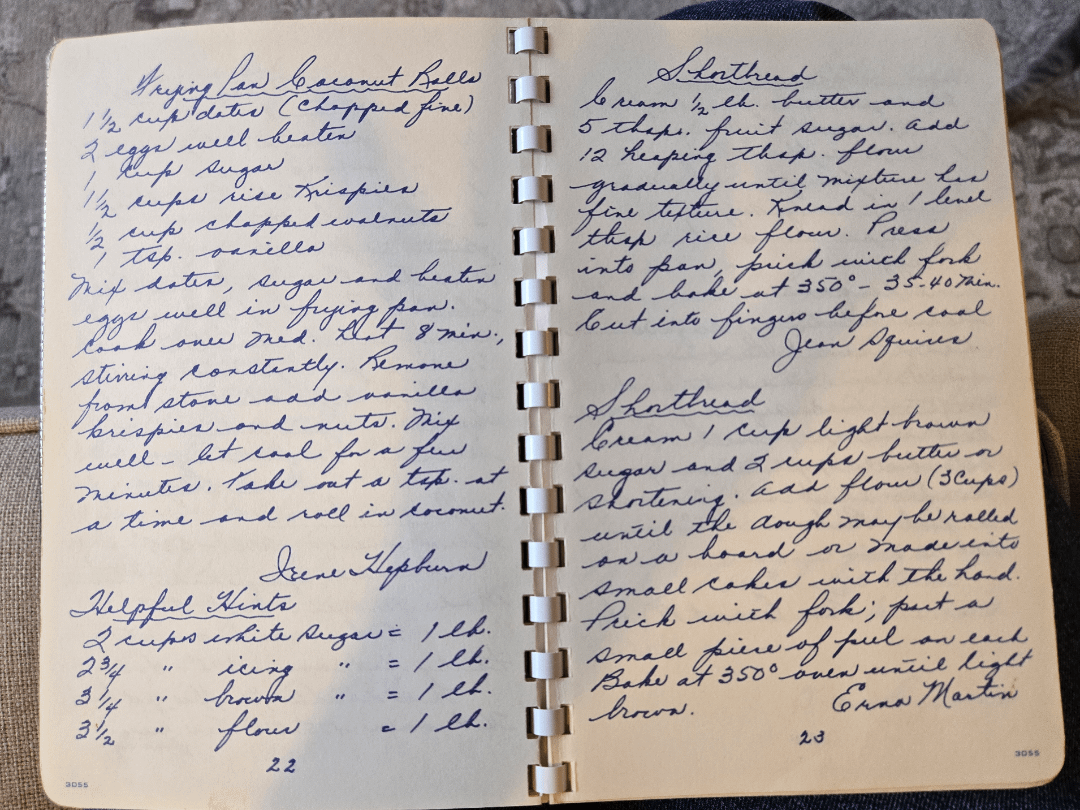 Frying Pan Coconut Balls
1 1/2 cup dates (Chopped fine)
2 eggs well beaten
1 cup sugar
1 1/2 cups rise Krispies
1/2 cup chopped walnuts
1 tsp. vanilla
Mix dates, sugar and beaten
eggs well in frying pan.
Cook over Med. Hot 8 min.,
stirring constantly. Remove
from stove add vanilla
krispies and nuts. Mix
well - let cool for a few
minutes. Take out a tsp. at
a time and roll in coconut.
Irene Hepburn
Helpful Hints
2 cups white sugar = 1 lb.
2 3/4 " icing " = 1 lb.
3 1/4 " brown " = 1 lb.
3 1/2 " flour = 1 lb.
22
3055
Shortbread
Cream 1/2 lb. butter and
5 tbsps. fruit sugar. Add
12 heaping tbsp. flour
gradually until mixture has
fine texture. Knead in 1 level
tbsp rice flour. Press
into pan, prick with fork
and bake at 350° - 35-40 Min.
Cut into fingers before cool
Jean Squires
Shortbread
Cream 1 cup light brown
sugar and 2 cups butter or
shortening. Add flour (3 Cups)
until the dough may be rolled
on a board or made into
small cakes with the hand.
Prick with fork; put a
small piece of peel on each
Bake at 350° oven until light
brown.
Erna Martin
23
3055